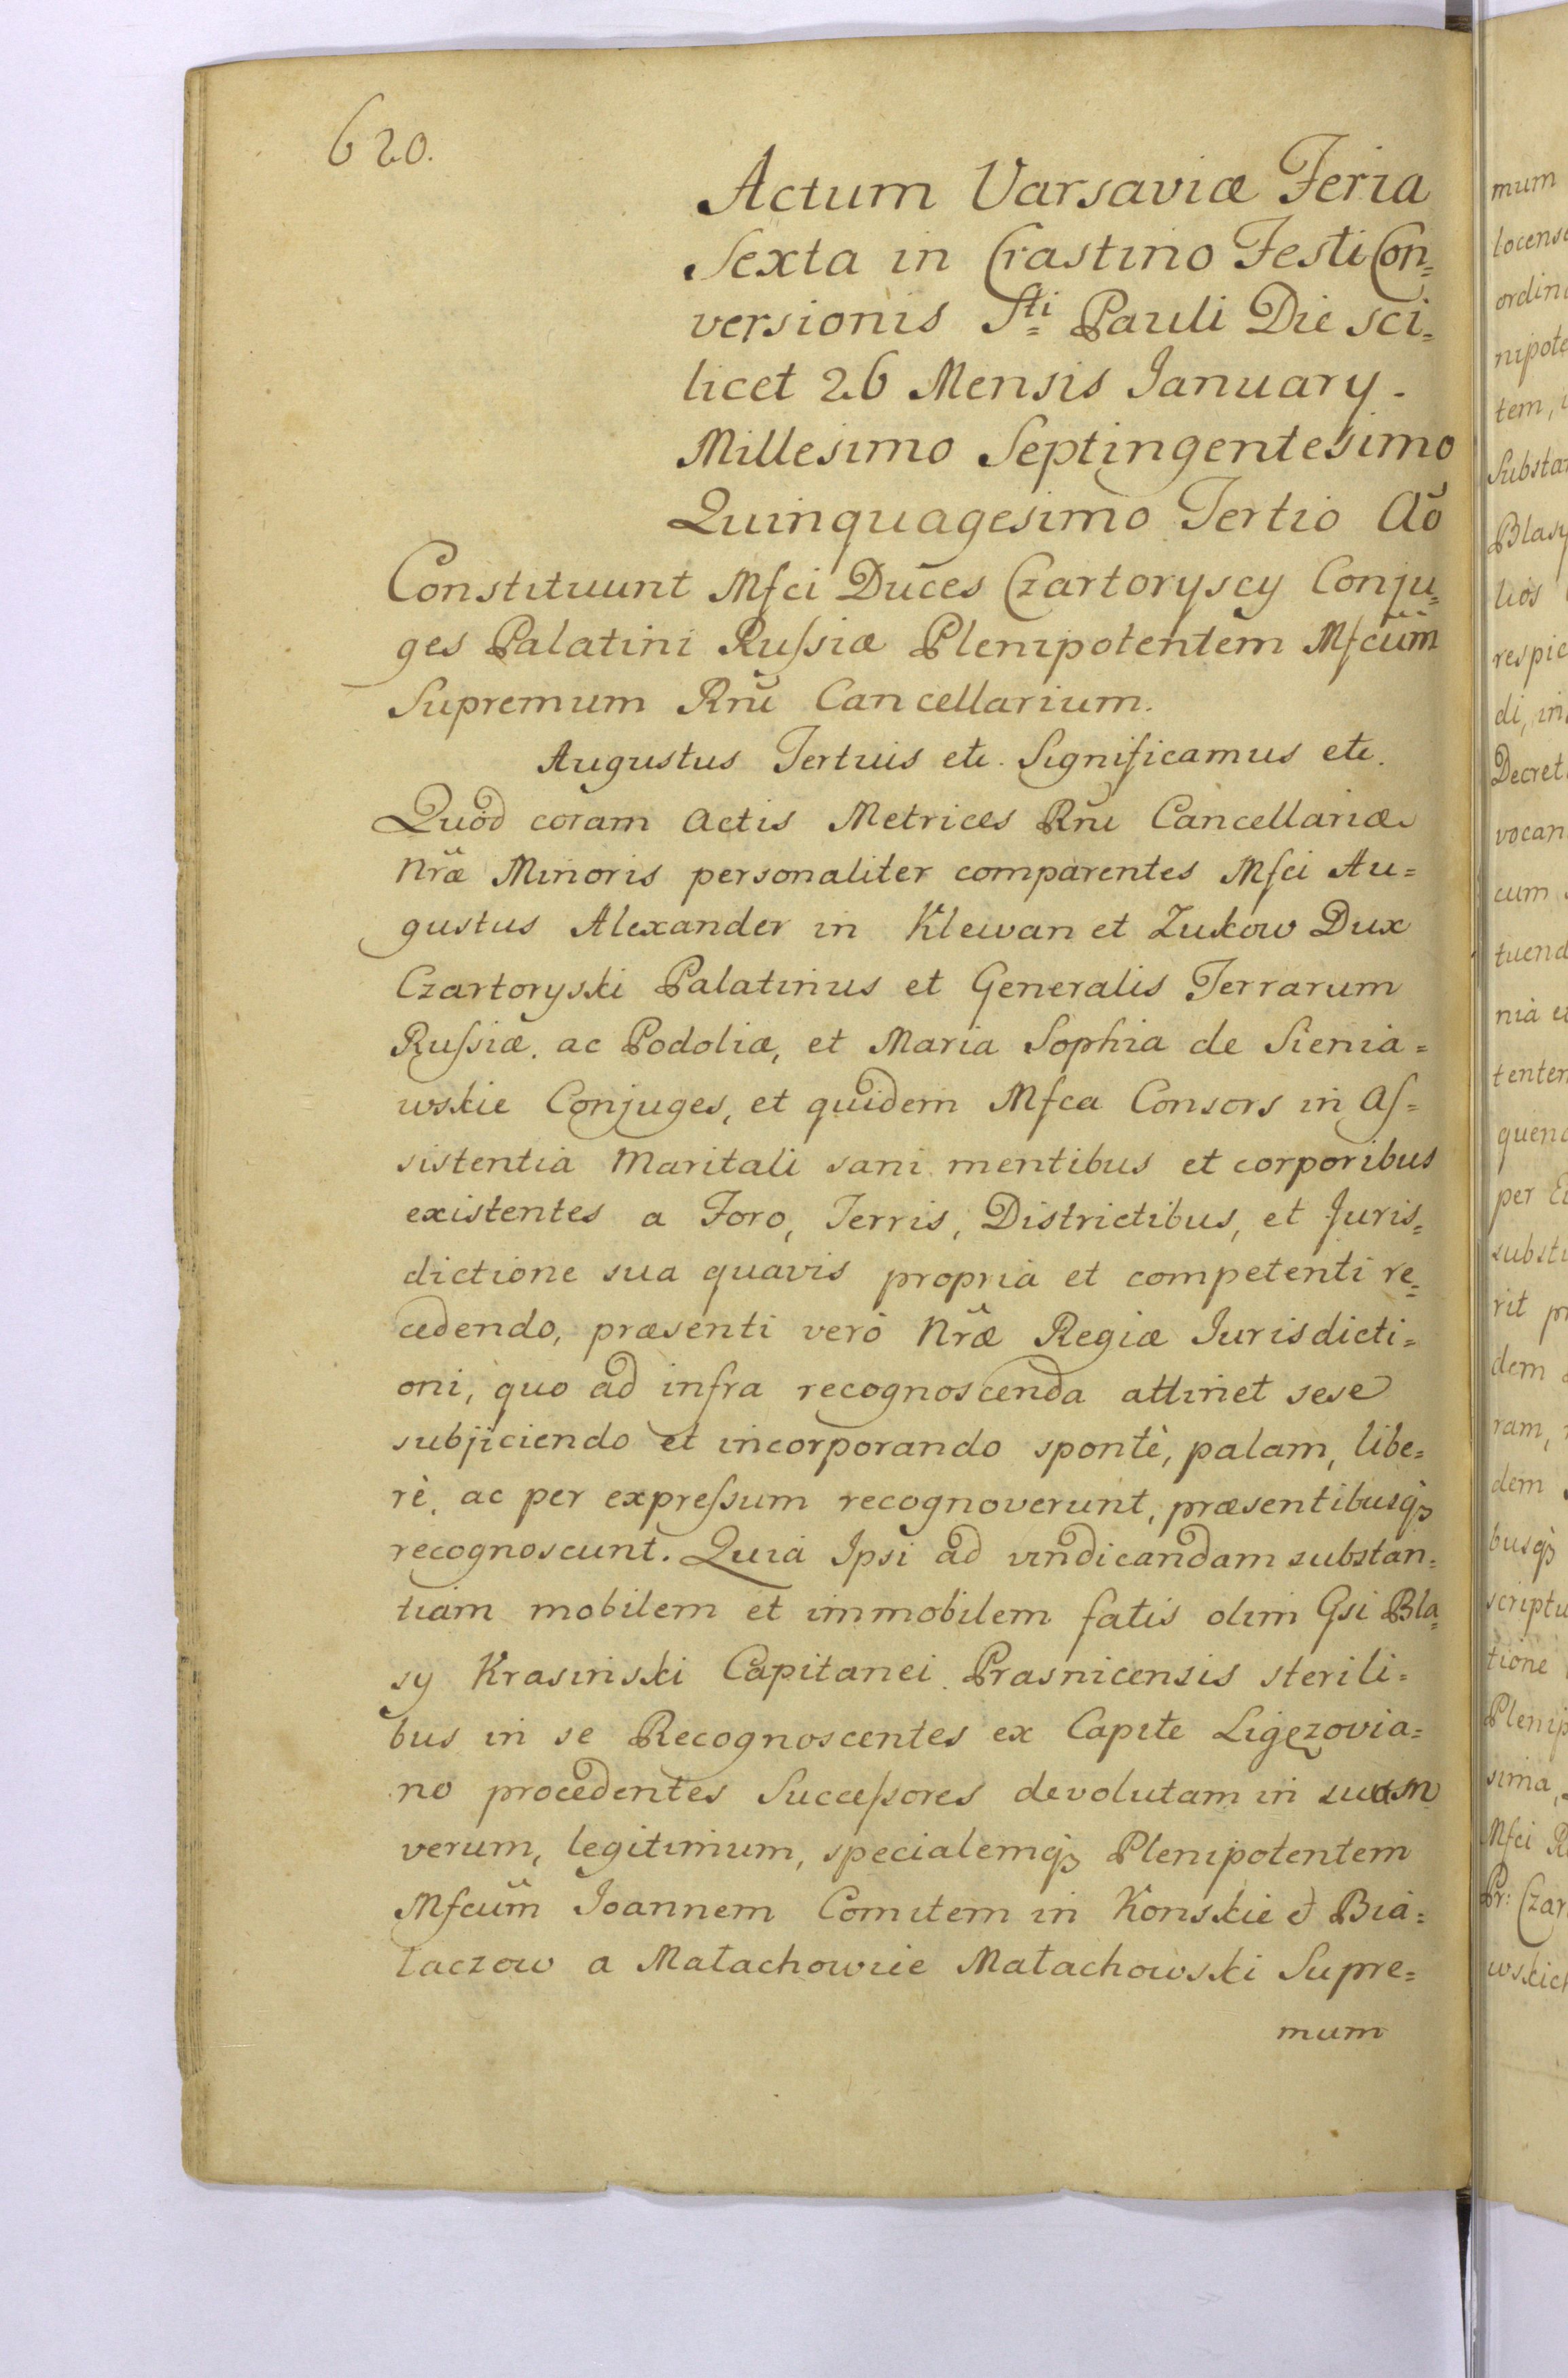 620.
Actum Varsaviæ Feria
Sexta in Crastino Festi Con=
versionis Sti Pauli Die sci=
licet 26 Mensis January.
Millesimo Septingentesimo
Quinquagesimo Tertio Aõ
Constituunt Mfci Duces Czartoryscy Conju=
ges Palatini Ruſsiæ Plenipotentem Mfcum̃
Supremum Rnĩ Cancellarium.
Augustus Tertius etc. Significamus etc.
Quod coram Actis Metrices Rnĩ Cancellariæ
Nræ̃ Minoris personaliter comparentes Mfci Au=
gustus Alexander in Klewan et Zukow Dux
Czartoryski Palatinus et Generalis Terrarum
Ruſsiæ, ac Podoliæ, et Maria Sophia de Sienia=
wskie Conjuges, et quidem Mfca Consors in Aſ=
sistentia Maritali sani mentibus et corporibus
existentes a Foro, Terris, Districtibus, et Juris=
dictione sua quavis propria et competenti re=
cedendo, præsenti verò Nræ̃ Regiæ Iurisdicti=
oni, quo ad infra recognoscenda attinet sese
subjiciendo et incorporando spontè, palam, libe=
rè, ac per expreſsum recognoverunt, præsentibusqꝫ
recognoscunt. Quia Ipsi ad vindicandam substan=
tiam mobilem et immobilem fatis olim Gsi Bla=
sy Krasinski Capitanei Prasnicensis sterili=
bus in se Recognoscentes ex Capite Ligęzovia=
no procedentes Succeſsores devolutam in suum
verum, legitimum, specialemqꝫ Plenipotentem
Mfcum̃ Joannem Comitem in Konskie et Bia=
łaczow a Małachowice Małachowski Supre=
mum
mum
ordin
tem,
Substan
Blasy
lios
respic
di, in
Decret
vocan
cum
tuend
nia
tentem
quend
per
substi
rit
dem
ram,
dem
busqꝫ
scriptu
tione
Plenip
sima,
Mfci
Pr: Czar
wskich